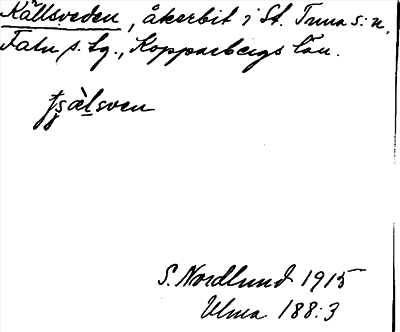 Källsveden, åkerbit i St. Tuna s:n,
Falu s. lg., Kopparbergs län.
S. Nordlund 1915
Ulma 188:3